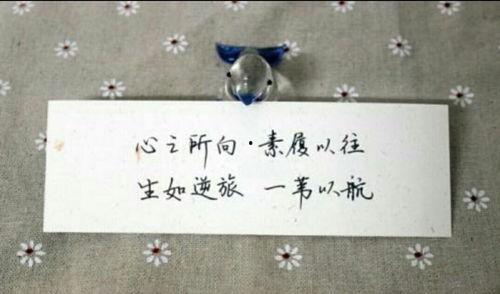 心之所向·素履以往
生如逆旅 一苇以航